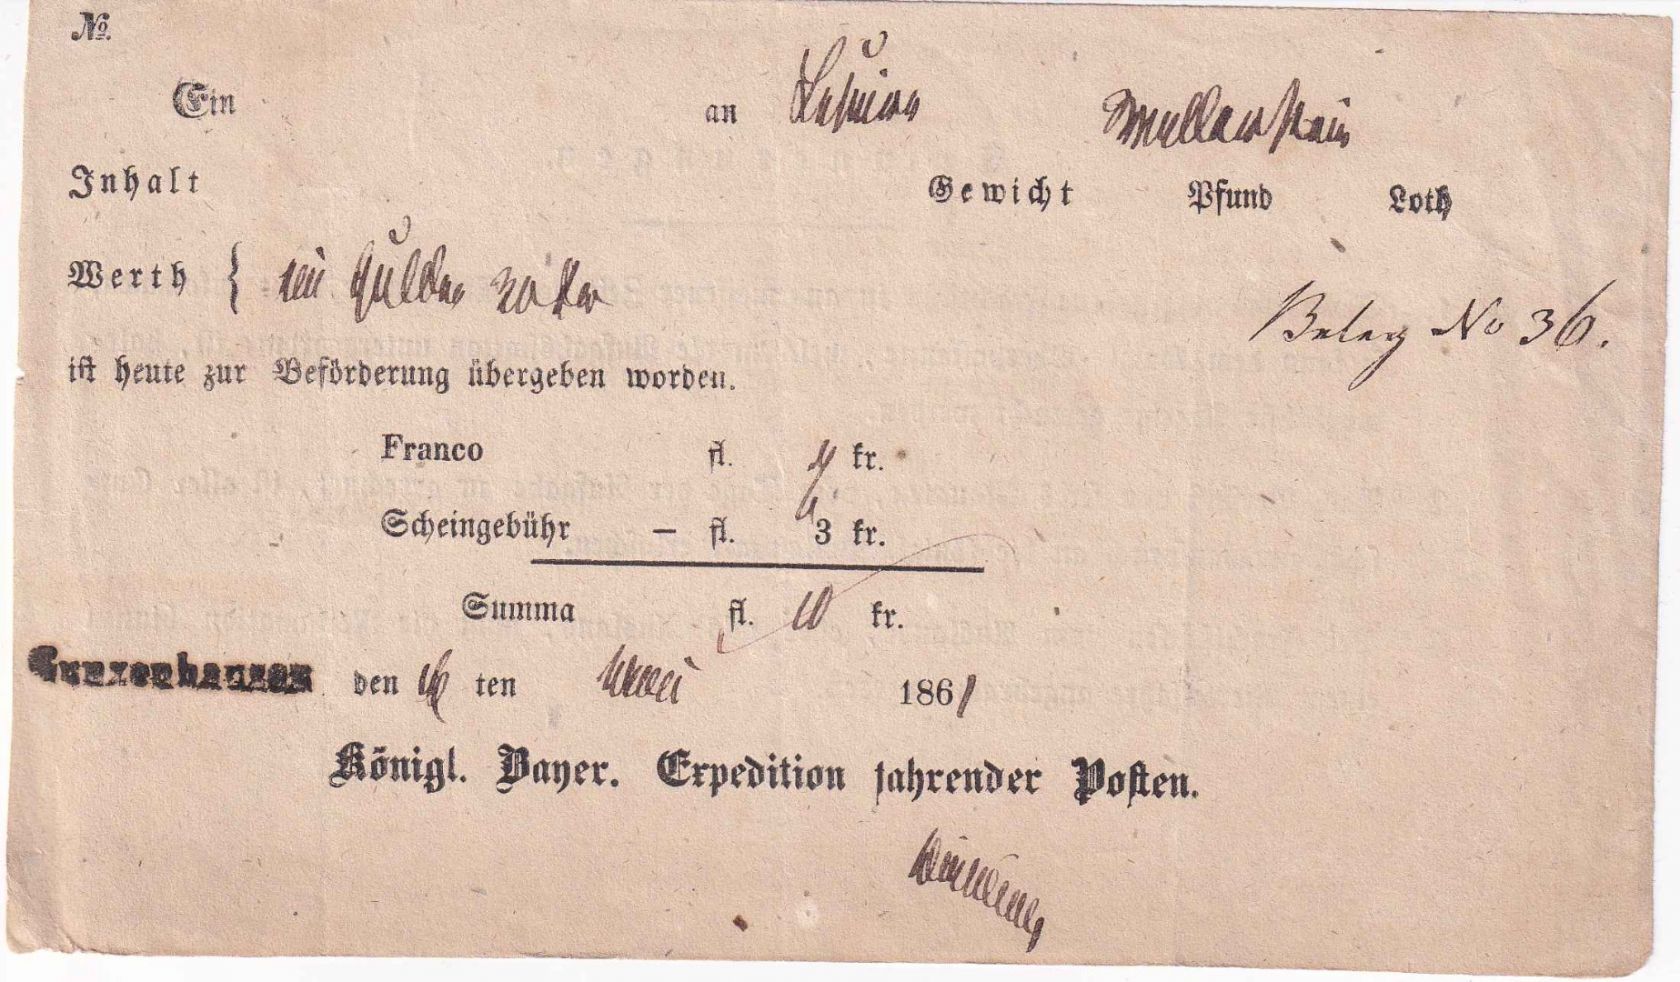 №.
Ein an
Inhalt Gewicht Pfund Loth
Werth { Gulden
Beleg No 36.
ist heute zur Beförderung übergeben worden.
Franco fl. kr.
Scheingebühr – fl. 3 kr.
Summa fl. 10 kr.
Gunzenhausen den ten 1861
Königl. Bayer. Expedition fahrender Posten.